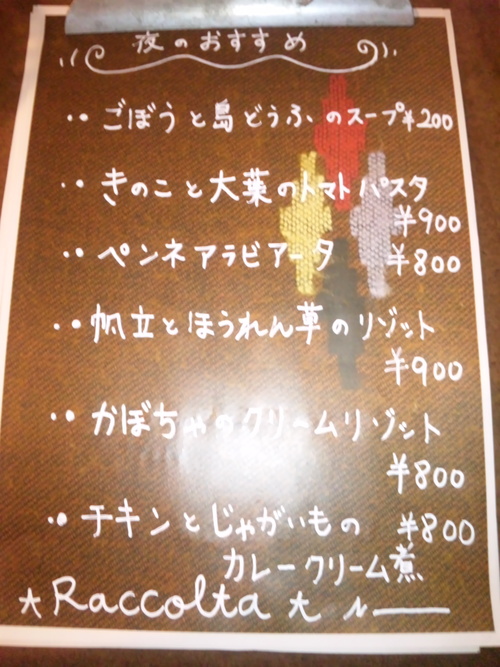 夜のおすすめ
ごぼうと島どうふのスープ¥200
きのこと大葉のトマトパスタ
¥900
ペンネアラビアータ ¥800
帆立とほうれん草のリゾット
¥900
かぼちゃのクリームリゾット
¥800
チキンとじゃがいもの ¥800
カレークリーム煮
★Raccolta★